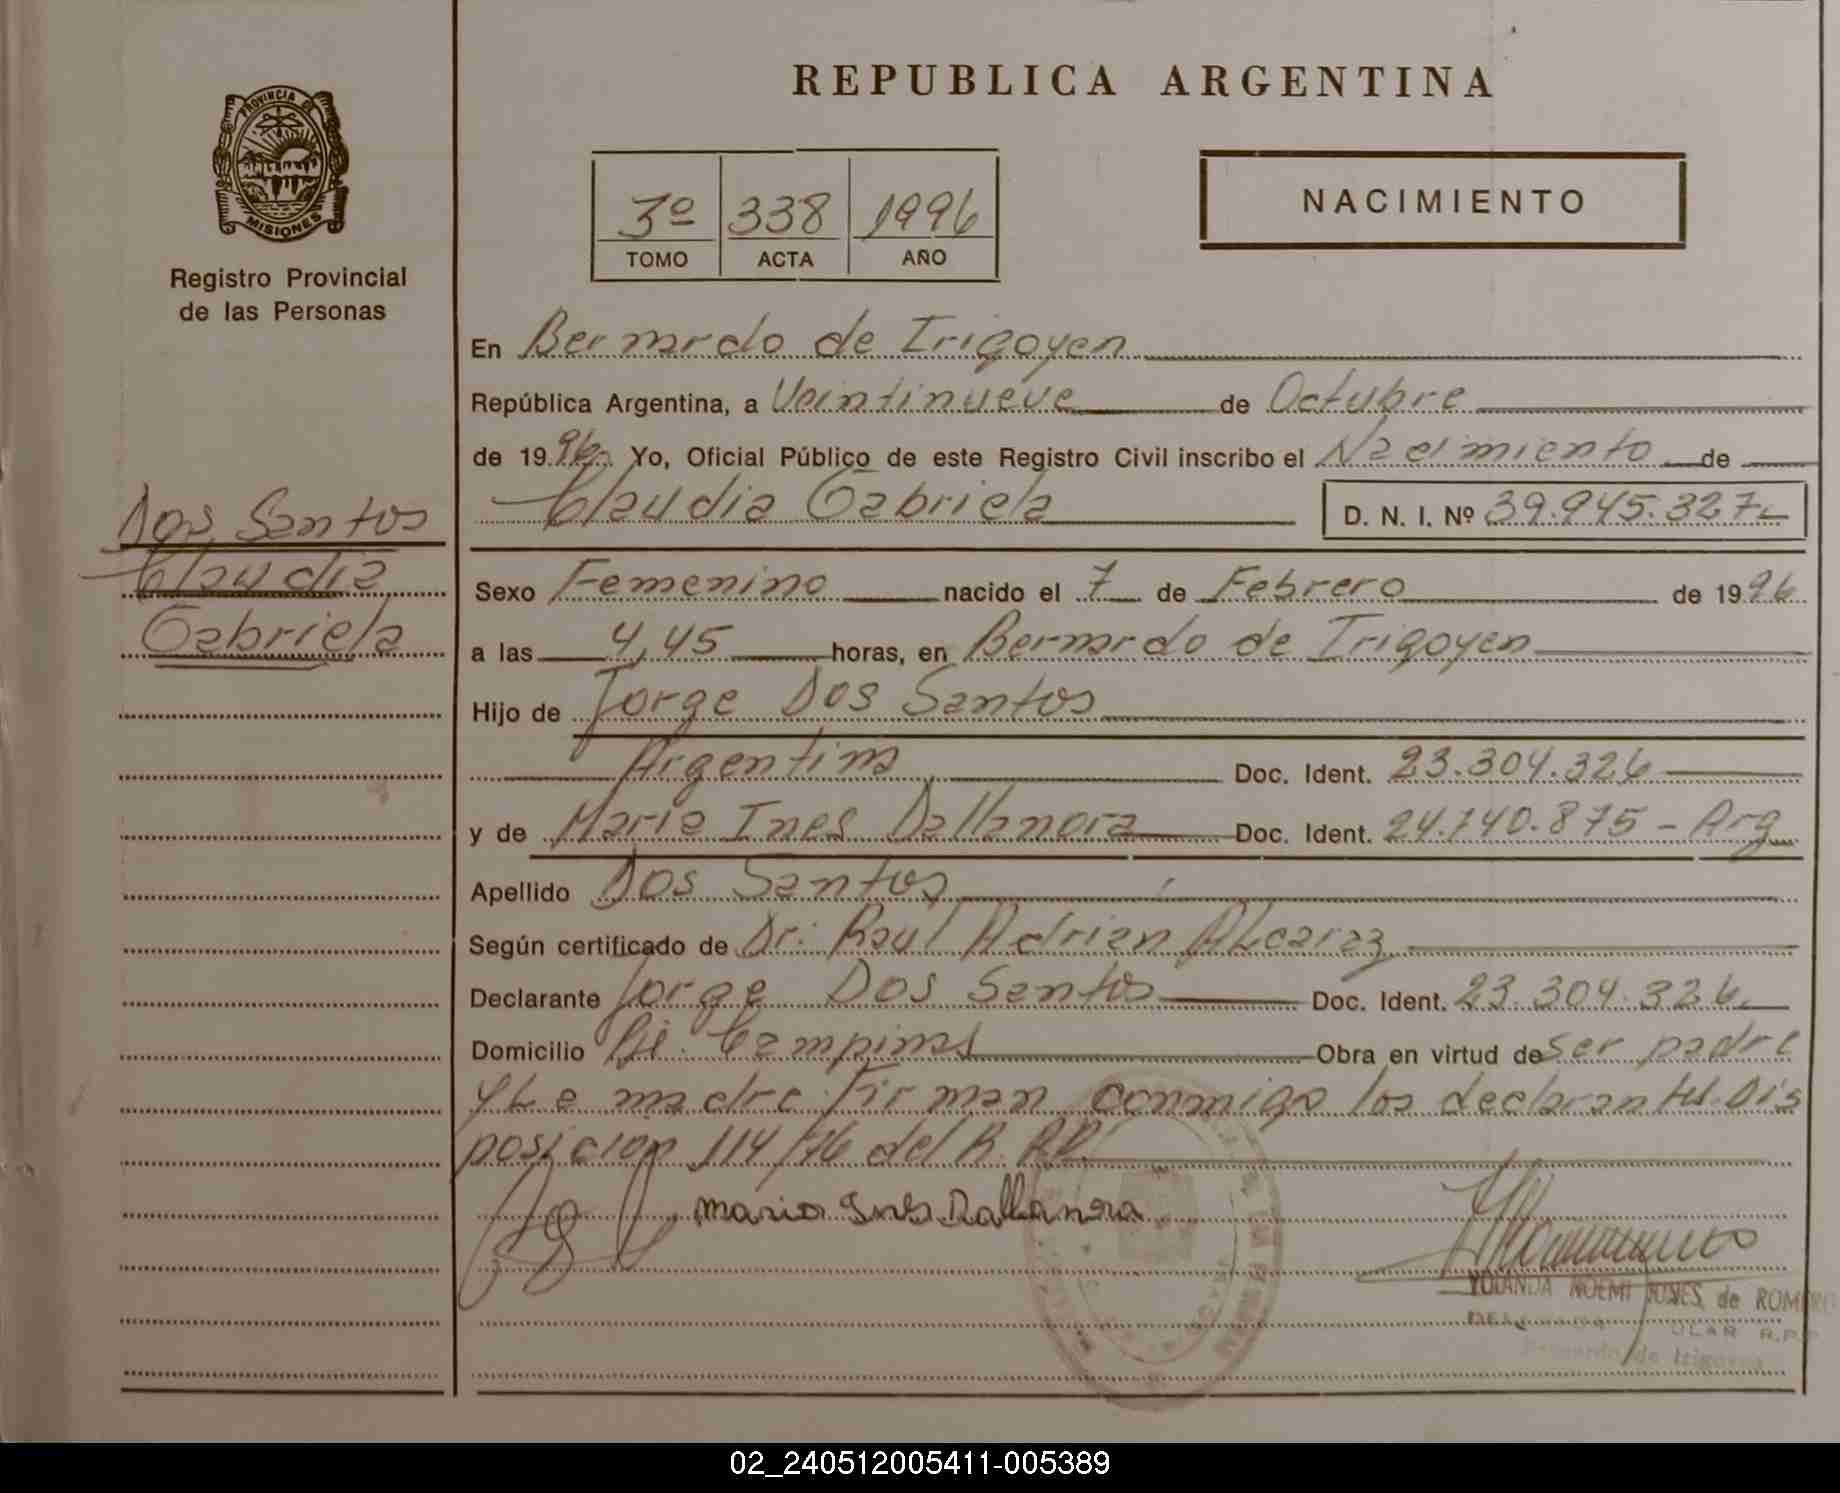 REPUBLICA ARGENTINA
PROVINCIA DE
MISIONES
Registro Provincial
de las Personas
3º 338 1996
TOMO ACTA AÑO
NACIMIENTO
En Bernardo de Irigoyen
República Argentina, a Veintinueve de Octubre
de 1996 Yo, Oficial Público de este Registro Civil inscribo el Nacimiento de
Claudia Gabriela D. N. I. Nº 39.945.327
Dos Santos
Claudia
Gabriela
Sexo Femenino nacido el 7 de Febrero de 1996
a las 4,45 horas, en Bernardo de Irigoyen
Hijo de Jorge Dos Santos
Argentina Doc. Ident. 23.304.326
y de Maria Ines Dallanora Doc. Ident. 24.140.875 - Arg
Apellido Dos Santos
Según certificado de Dr. Raul Adrian Alcaraz
Declarante Jorge Dos Santos Doc. Ident. 23.304.326
Domicilio Campinas Obra en virtud de ser padre
y La madre Firman conmigo los declarantes. Dis
posicion 114/76 del R.
Maria Ines Dallanora
YOLANDA NOEMI de ROMERO
R.P.P
Bernardo de Irigoyen
02_240512005411-005389